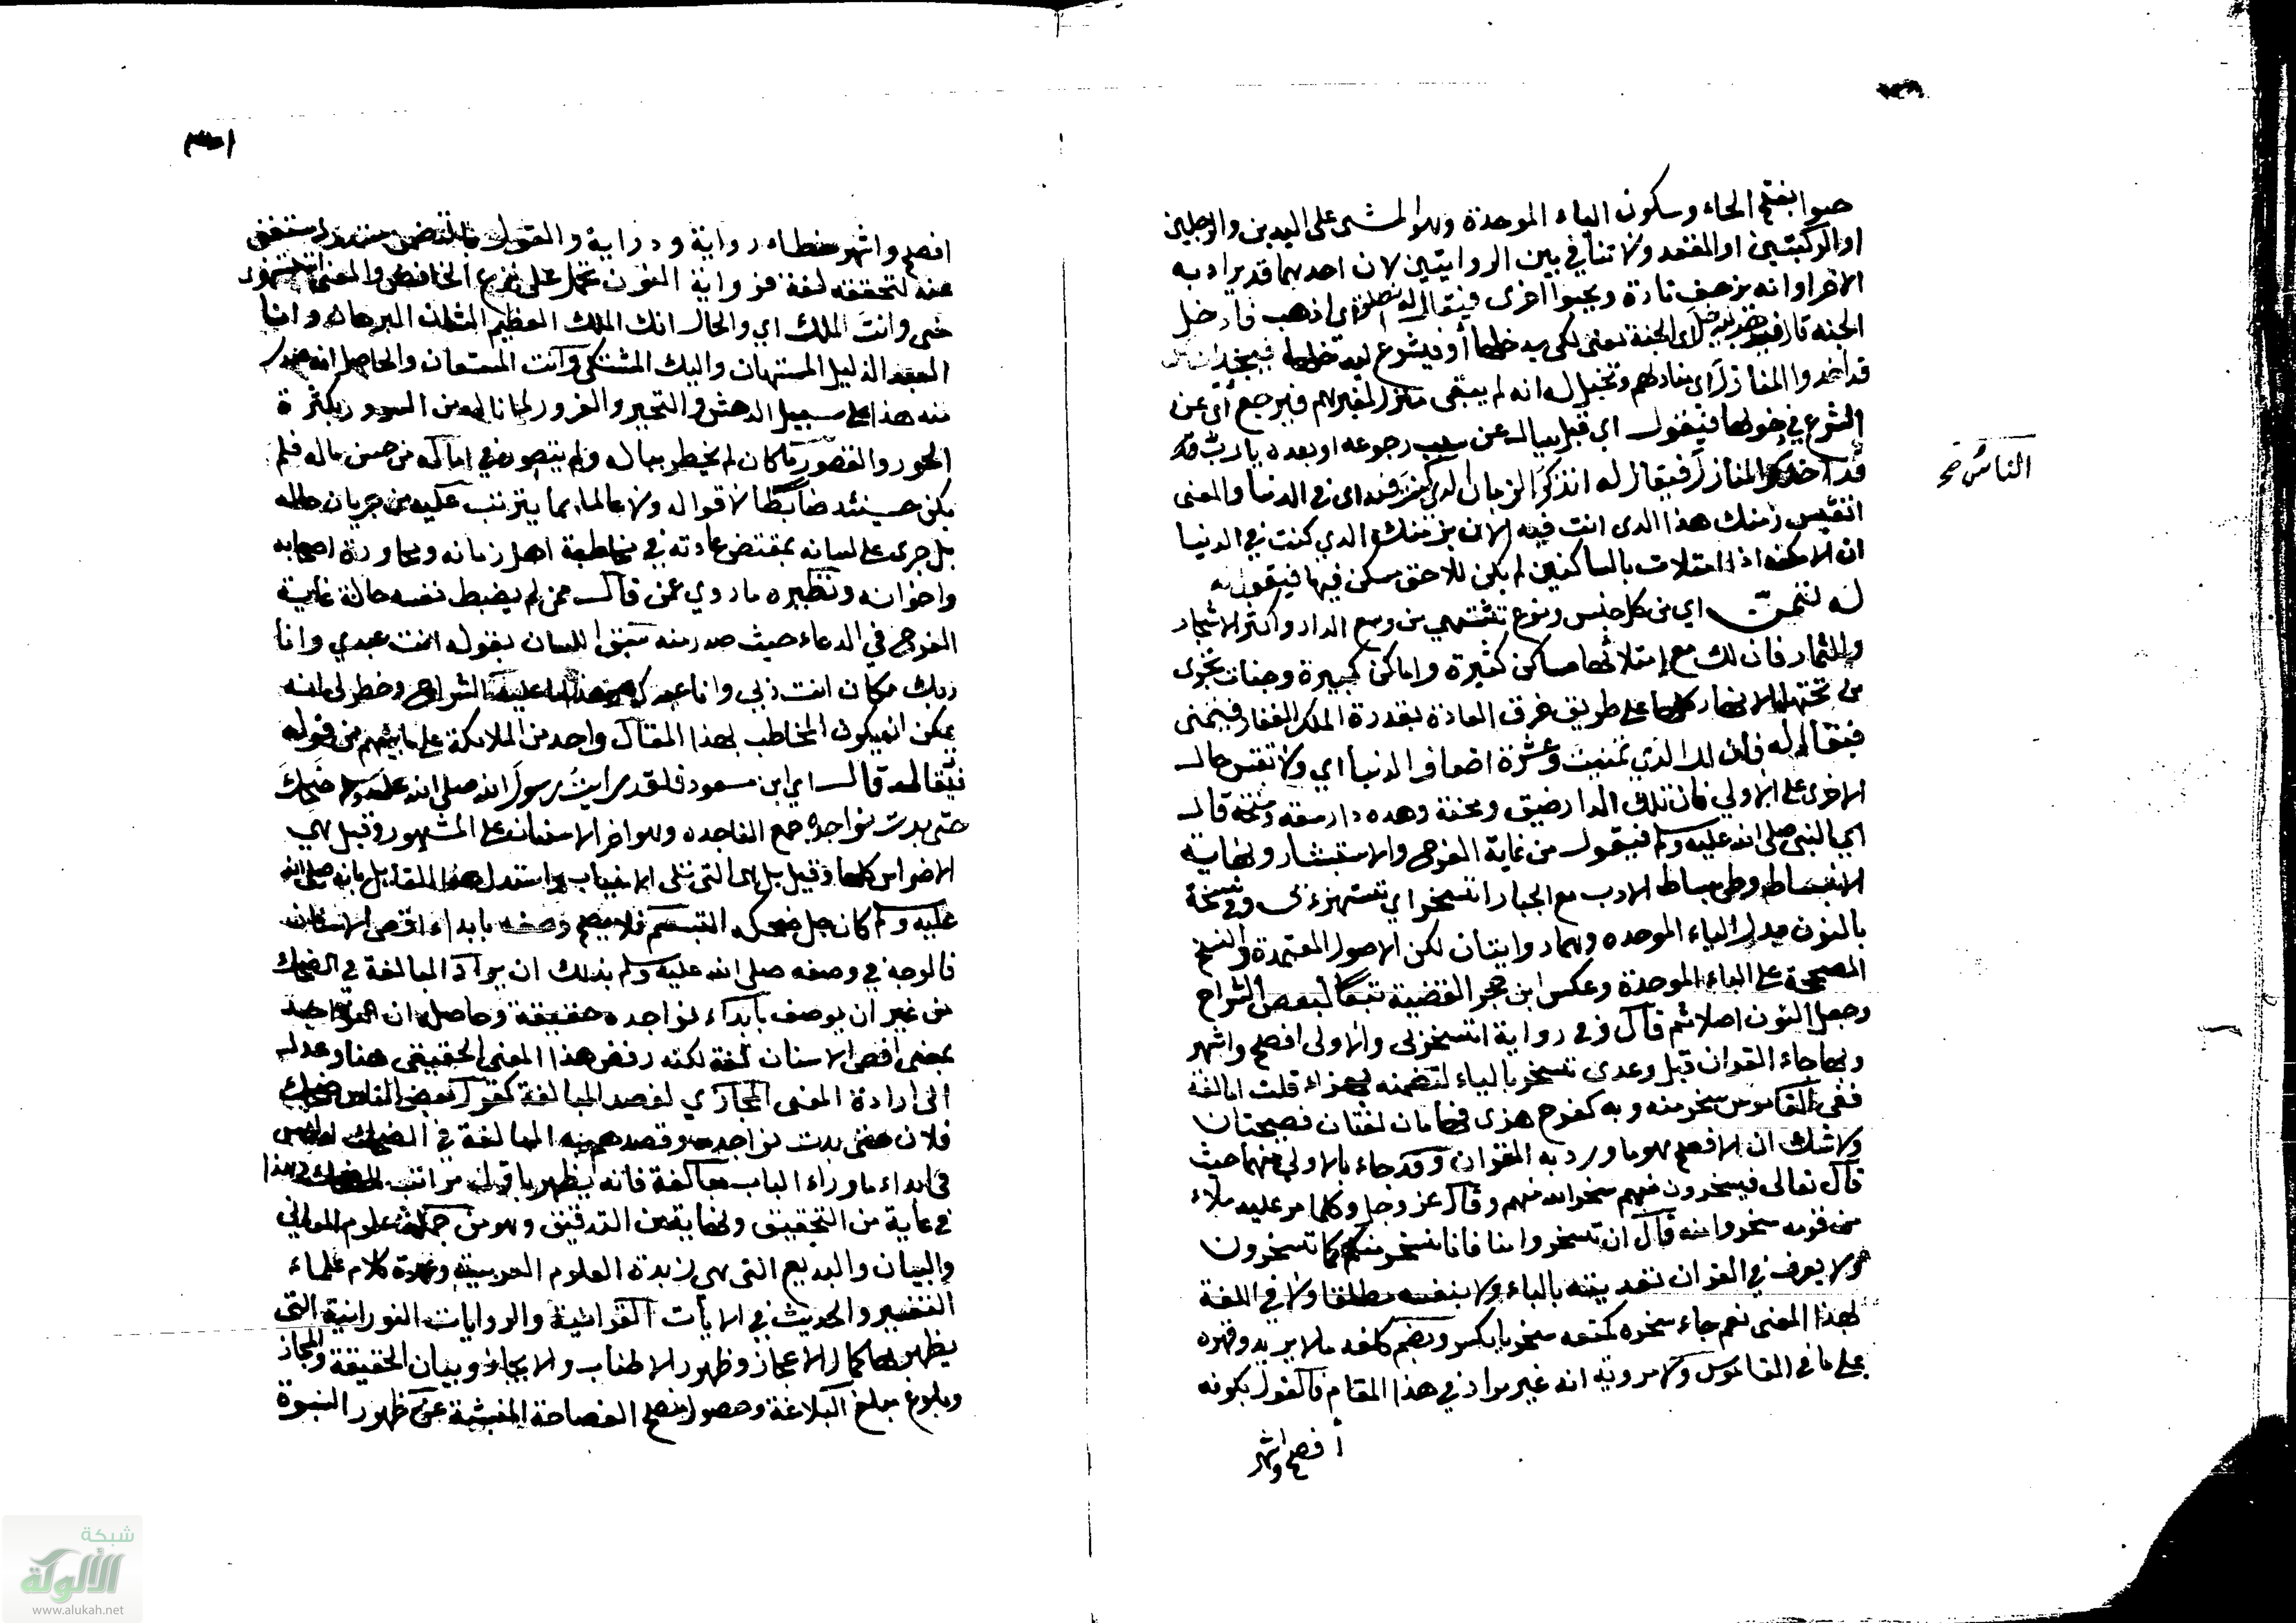 حبوا بفتح الحاء وسكون الباء الموحدة وهو المشى على اليدين والرجلين
او الركبتين او المقعد ولا تنافي بين الروايتين لان احدهما قد يراد به
الاخر او انه يزحف تارة ويحبوا اخرى فيقال له انطلق اي اذهب فادخل
الجنة قال فيذهب ليدخل اى الجنة يعنى لكى يدخلها أو فيشرع ليدخلها فيجد الناس
قد اخذوا المنازل اى منازلهم وتخيل له انه لم يبقى منزل لغيرهم فيرجع أى عن
الشرع في دخولها فيقول اي قبل يسال عن سبب رجوعه او بعده يا رب قد
قد اخذ المنازل فيقال له اتذكر الزمان الذي كنت فيه اى في الدنيا والمعنى
اتقيس زمنك هذا الذى انت فيه الان بزمنك الذي كنت في الدنيا
ان الامكنة اذا امتلات بالساكنين لم يكن للاحق مسكن فيها فيقول
له تمن اي من كل جنس ونوع تشتهي من وسع الدار وكثرة الاشجار
والثمار فان لك مع امتلائها مساكن كثيرة واماكن كبيرة وجنات تجرى
من تحتها الانهار كلها على طريق خرق العادة بقدرة الملك الغفار فيتمنى
فيقال له فان لك الذي تمنيت وعشرة اضعاف الدنيا اي ولا تقس حال
الاخرى على الاولى فان تلك الدار ضيق ومحنة وهذه دار سعة ومنحة قال
اي النبي صلى الله عليه وسلم فيقول من غاية الفرح والاستبشار ونهاية
الانبساط وطى بساط الادب مع الجبار اتسخر اي تستهزئ بى وفي نسخة
بالنون بدل الباء الموحده وهما روايتان لكن الاصول المعتمدة والنسخ
المصححة على الباء الموحدة وعكس ابن حجر القضية تبعا لبعض الشراح
وجعل النون اصلا ثم قال وفى رواية اتسخر بى والاولى افصح واشهر
وبها جاء القران قيل وعدى تسخر بالباء لتضمنه تهزاء قلت اما لغة
ففي القاموس سخر منه وبه كفرح هزئ فهما لغتان فصيحتان
ولا شك ان الافصح هو ما ورد به القران وقد جاء بالاولى منهما حيث
قال تعالى فيسخرون منهم سخر الله منهم وقال عز وجل وكلما مر عليه ملاء
من قومه سخروا منه قال ان تسخروا منا فانا نسخر منكم كما تسخرون
ولا يعرف في القران تعديته بالباء ولا بنفسه مطلقا ولا في اللغة
بهذا المعنى نعم جاء سخره كمنعه سخريا بكسر وبضم كلفه ما لا يريد وقهره
على ما في القاموس ولا مرية انه غير مراد في هذا المقام فالقول بكونه
أفصح واشهر
الناس صح
افصح واشهر خطاء رواية ودراية والقول بالتضمن مستغنى
عنه لتحققه لغة فرواية النون تحمل على نزع الخافض والمعنى اتستهزئ
منى وانت الملك اي والحال انك الملك العظيم الشان البرهان وانا
العبد الذليل المستهان واليك المشتكى وانت المستعان والحاصل انه صدر
منه هذا على سبيل الدهش والتحير والغرور لما ناله من السرور بكثرة
الحور والقصور مما كان لم يخطر بباله ولم يتصور في اماله من حسن ماله فلم
يكن حينئد ضابطا لاقواله ولا عالما بما يترتب عليه من جريان حاله
بل جرى على لسانه بمقتضى عادته في مخاطبة اهل زمانه ومحاورة اصحابه
واخوانه ونظيره ما روي عمن قال ممن لم يضبط نفسه حالة غاية
الفرح في الدعاء حيث صدر منه سبق اللسان بقوله انت عبدي وانا
ربك مكان انت ربي وانا عبدك هذا ما عليه الشراح وخطر لى انه
يمكن ان يكون المخاطب لهذا المقال واحد من الملائكة على ما يفهم من قوله
فيقال له قال اي ابن مسعود فلقد رايت رسول الله صلى الله عليه وسلم ضحك
حتى بدت نواجذه جمع الناجذه وهو اخر الاسنان على المشهور وقيل هى
الاضراس كلها وقيل بل هى التى تلى الانياب واستدل هذا القايل بانه صلى الله
عليه وسلم كان جل ضحكه التبسم فلا يصح وصفه بابداء اقصى الاسنان
فالوجه في وصفه صلى الله عليه وسلم بذلك ان يراد المبالغة في الضحك
من غير ان يوصف بابداء نواجده حقيقة وحاصله ان النواجذ
بمعنى اقصى الاسنان لغة لكنه رفض هذا المعنى الحقيقى هنا وعدل
الى ارادة المعنى المجازي لقصد المبالغة كقول بعض الناس ضحك
فلان حتى بدت نواجده وقصدهم به المبالغة في الضحك
فى ابداء ما وراء الناب مبالغة فانه يظهر باول مراتب الضحك وهذا
في غاية من التحقيق ونهاية من التدقيق وهو من جملة علوم المعاني
والبيان والبديع التي هي زبدة العلوم العربية وعمدة كلام علماء
التفسير والحديث في الايات القرانية والروايات النورانية التى
يظهر بها كمال الاعجاز وظهور الاطناب والايجاز وبيان الحقيقة والمجاز
وبلوغ مبلغ البلاغة وحصول الفصاحة المنبئة عن ظهور النبوة
شبكة
الألوكة
www.alukah.net